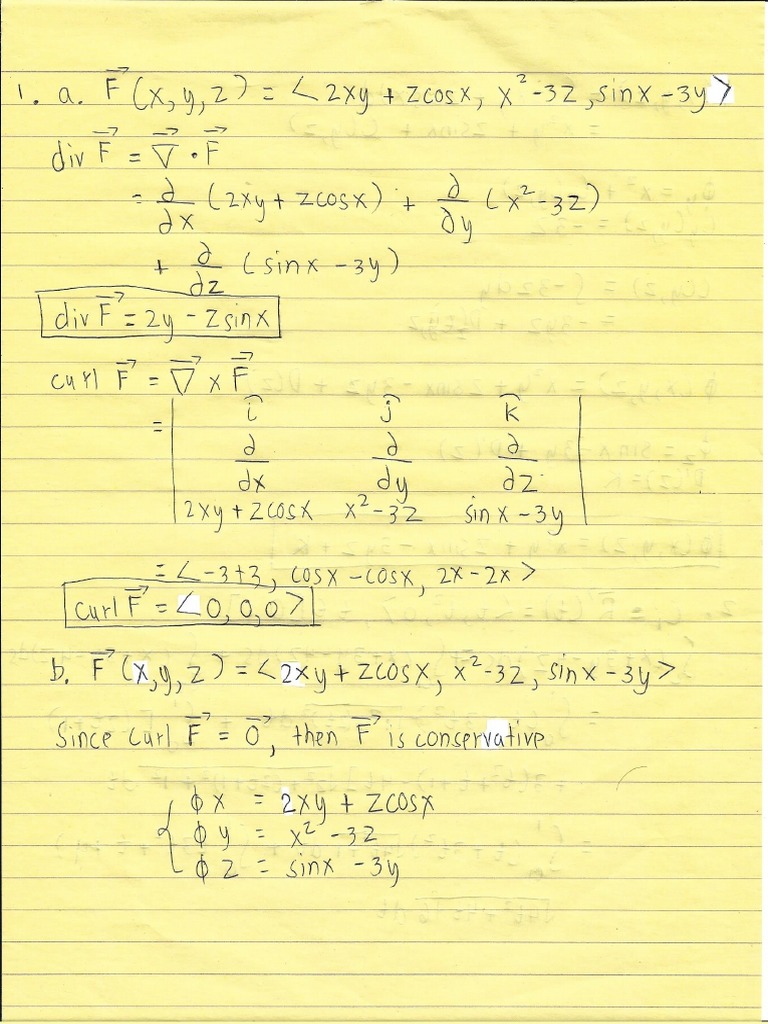 1. a. F⃗ (x, y, z) = < 2xy + zcosx, x² - 3z, sinx - 3y >
div F⃗ = ∇⃗ · F⃗
= ∂/∂x (2xy + zcosx) + ∂/∂y (x² - 3z)
+ ∂/∂z (sinx - 3y)
div F⃗ = 2y - zsinx
curl F⃗ = ∇⃗ x F⃗
= | i⃗ j⃗ k⃗ |
| ∂/∂x ∂/∂y ∂/∂z |
| 2xy + zcosx x² - 3z sinx - 3y |
= < -3+3, cosx - cosx, 2x - 2x >
curl F⃗ = < 0, 0, 0 >
b. F⃗ (x, y, z) = < 2xy + zcosx, x² - 3z, sinx - 3y >
Since curl F⃗ = 0⃗, then F⃗ is conservative
{ ϕx = 2xy + zcosx
ϕy = x² - 3z
ϕz = sinx - 3y